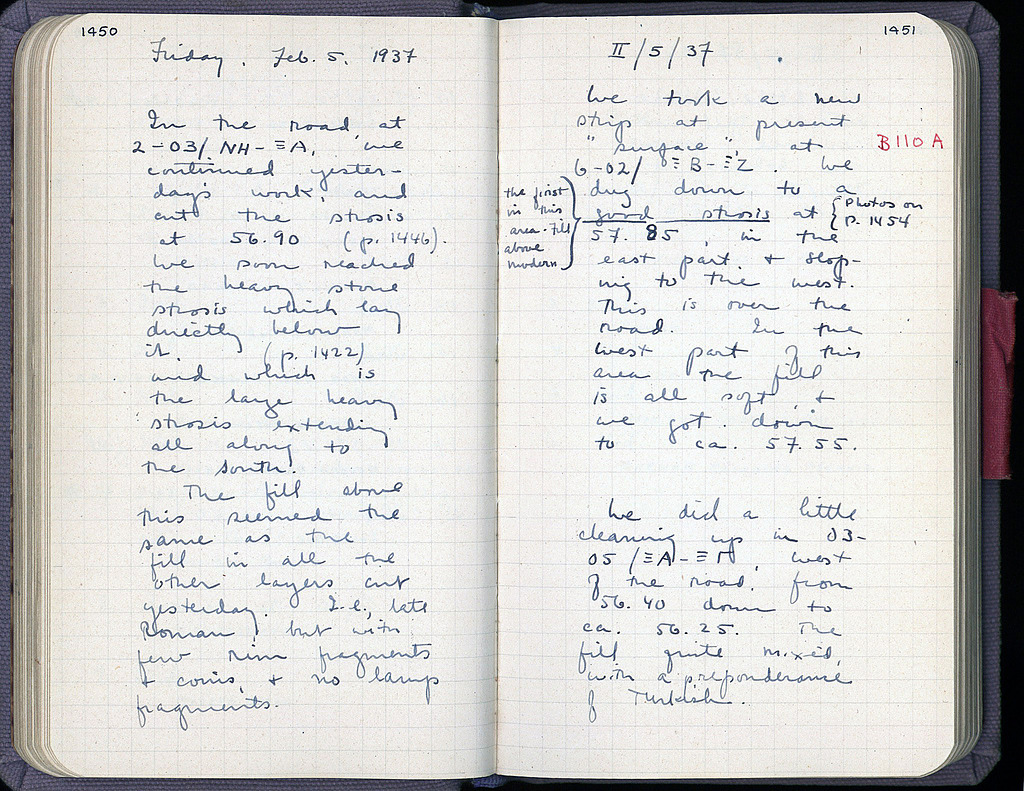 1450
Friday, Feb. 5, 1937
In the road, at
2-03/ NH-ΞA, we
continued yester-
day's work, and
cut the strosis
at 56.90 (p. 1446).
We soon reached
the heavy stone
strosis which lay
directly below
it. (p. 1422)
and which is
the large heavy
strosis extending
all along to
the south.
The fill above
this seemed the
same as the
fill in all the
other layers cut
yesterday. I.e., late
Roman, but with
few rim fragments
& coins, & no lamp
fragments.
1451
II/5/37
We took a new
strip at present
"surface", at
B110 A
6-02/ ΞB-ΞZ. We
dug down to a
good strosis at
{Photos on
p. 1454
the first
in this
area. Fill
above
modern
57.85, in the
east part & slop-
ing to the west.
This is over the
road. In the
west part of this
area the fill
is all soft, &
we got down
to ca. 57.55.
We did a little
cleaning up in 03-
05/ΞA-ΞΓ, west
of the road, from
56.40 down to
ca. 56.25. The
fill quite mixed,
with a preponderance
of Turkish.